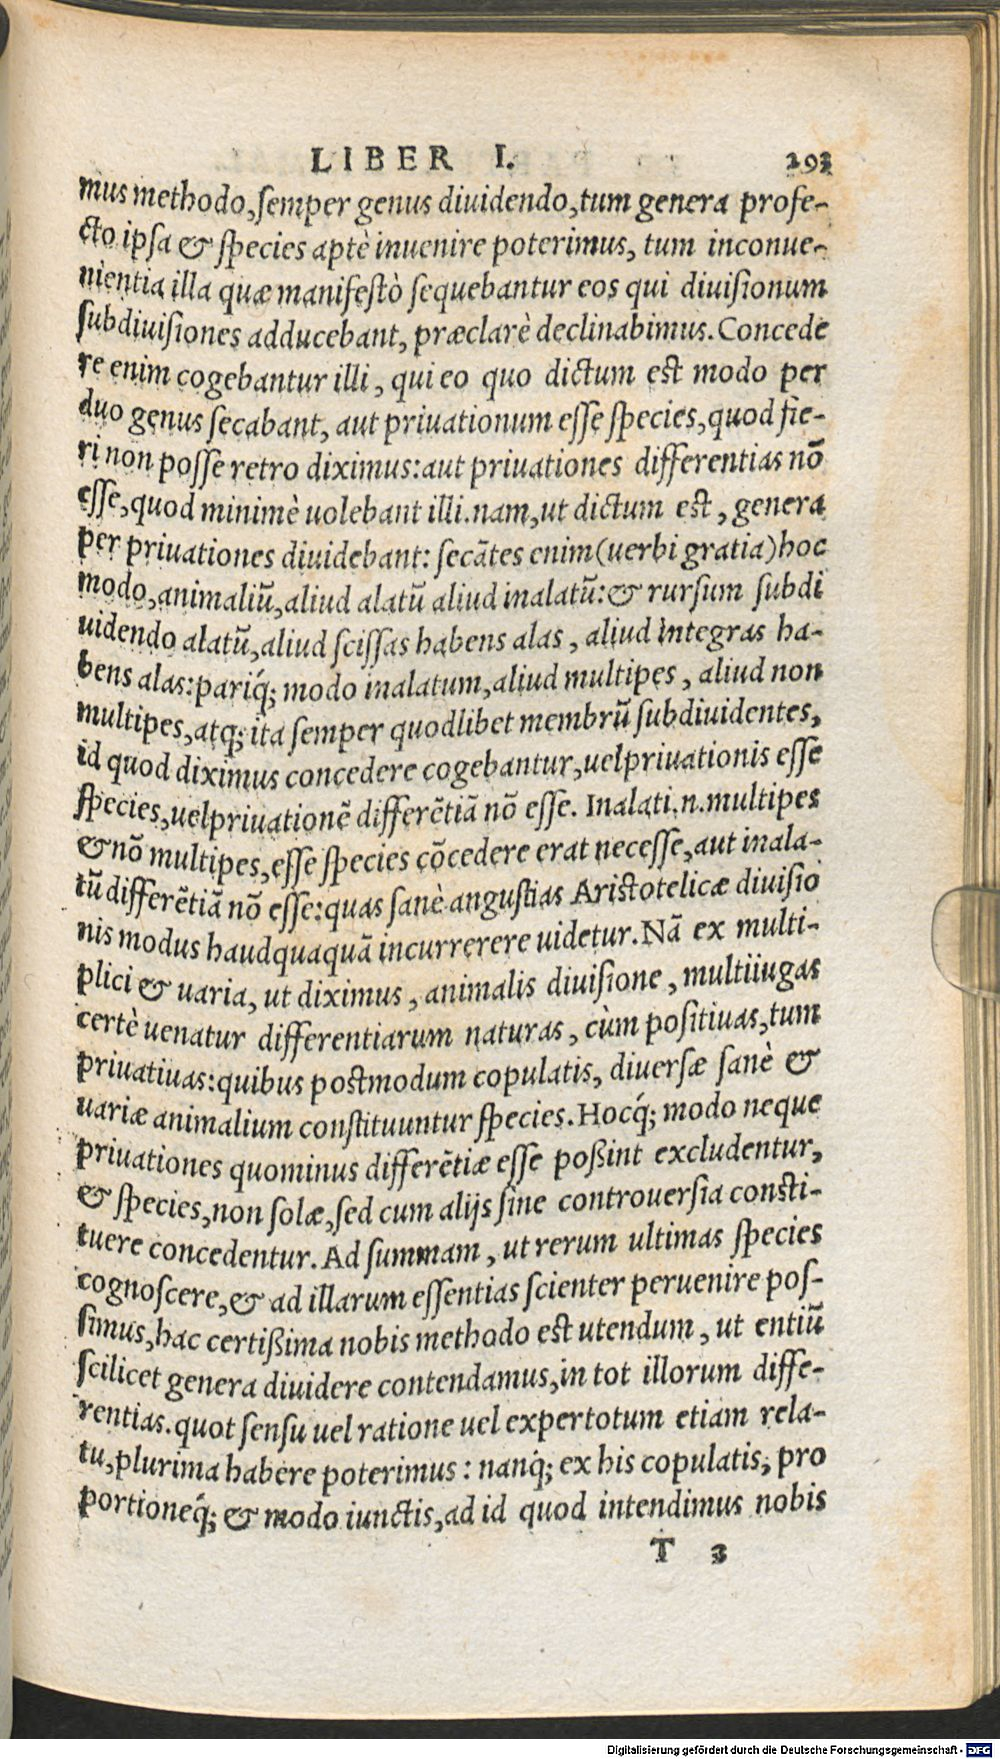 LIBER I. 293
mus methodo,semper genus diuidendo,tum genera profe-
cto ipsa & species aptè inuenire poterimus, tum inconue-
nientia illa quæ manifestò sequebantur eos qui diuisionum
subdiuisiones adducebant, præclarè declinabimus. Concede
re enim cogebantur illi, qui eo quo dictum est modo per
duo genus secabant, aut priuationum esse species,quod fie-
ri non posse retro diximus:aut priuationes differentias nō
esse,quod minimè uolebant illi.nam,ut dictum est, genera
per priuationes diuidebant: secātes enim(uerbi gratia)hoc
modo,animaliū,aliud alatū aliud inalatū:& rursum subdi
uidendo alatū,aliud scissas habens alas, aliud integras ha-
bens alas:pariq́; modo inalatum,aliud multipes, aliud non
multipes,atq; ita semper quodlibet membrū subdiuidentes,
id quod diximus concedere cogebantur,uelpriuationis esse
species,uelpriuationē differētiā nō esse. Inalati.n.multipes
& nō multipes,esse species cōcedere erat necesse,aut inala-
tū differētiā nō esse:quas sanè angustias Aristotelicæ diuisio
nis modus haudquaquā incurrerere uidetur. Nā ex multi-
plici & uaria, ut diximus, animalis diuisione, multiiugas
certè uenatur differentiarum naturas, cùm positiuas,tum
priuatiuas:quibus postmodum copulatis, diuersæ sanè &
uariæ animalium constituuntur species. Hocq́; modo neque
priuationes quominus differētiæ esse poßint excludentur,
& species,non solæ,sed cum alijs sine controuersia consti-
tuere concedentur. Ad summam, ut rerum ultimas species
cognoscere,& ad illarum essentias scienter peruenire pos-
simus,hac certißima nobis methodo est utendum, ut entiū
scilicet genera diuidere contendamus,in tot illorum diffe-
rentias.quot sensu uel ratione uel expertotum etiam rela-
tu,plurima habere poterimus: nanq́; ex his copulatis, pro
portioneq́; & modo iunctis,ad id quod intendimus nobis
T 3
Digitalisierung gefördert durch die Deutsche Forschungsgemeinschaft - DFG